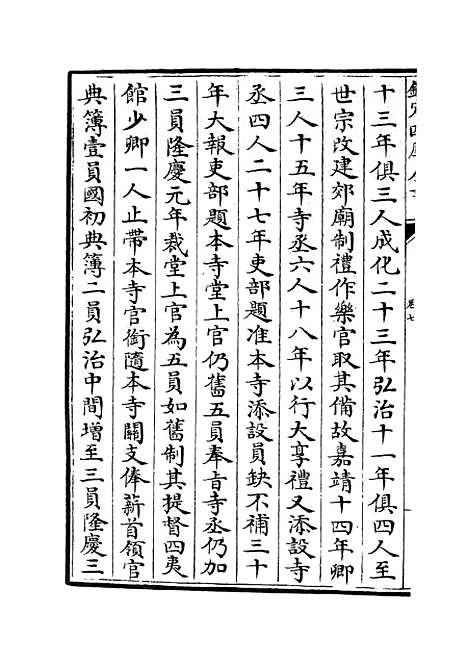 十三年俱三人成化二十三年弘治十一年俱四人至
世宗改建郊廟制禮作樂官取其備故嘉靖十四年卿
三人十五年寺丞六人十八年以行大享禮又添設寺
丞四人二十七年吏部題准本寺添設員缺不補三十
年大報吏部題本寺堂上官仍舊五員奉旨寺丞仍加
三員隆慶元年裁堂上官為五員如舊制其提督四夷
館少卿一人止帶本寺官銜隨本寺關支俸薪首領官
典簿壹員國初典簿二員弘治中間增至三員隆慶三
卷七